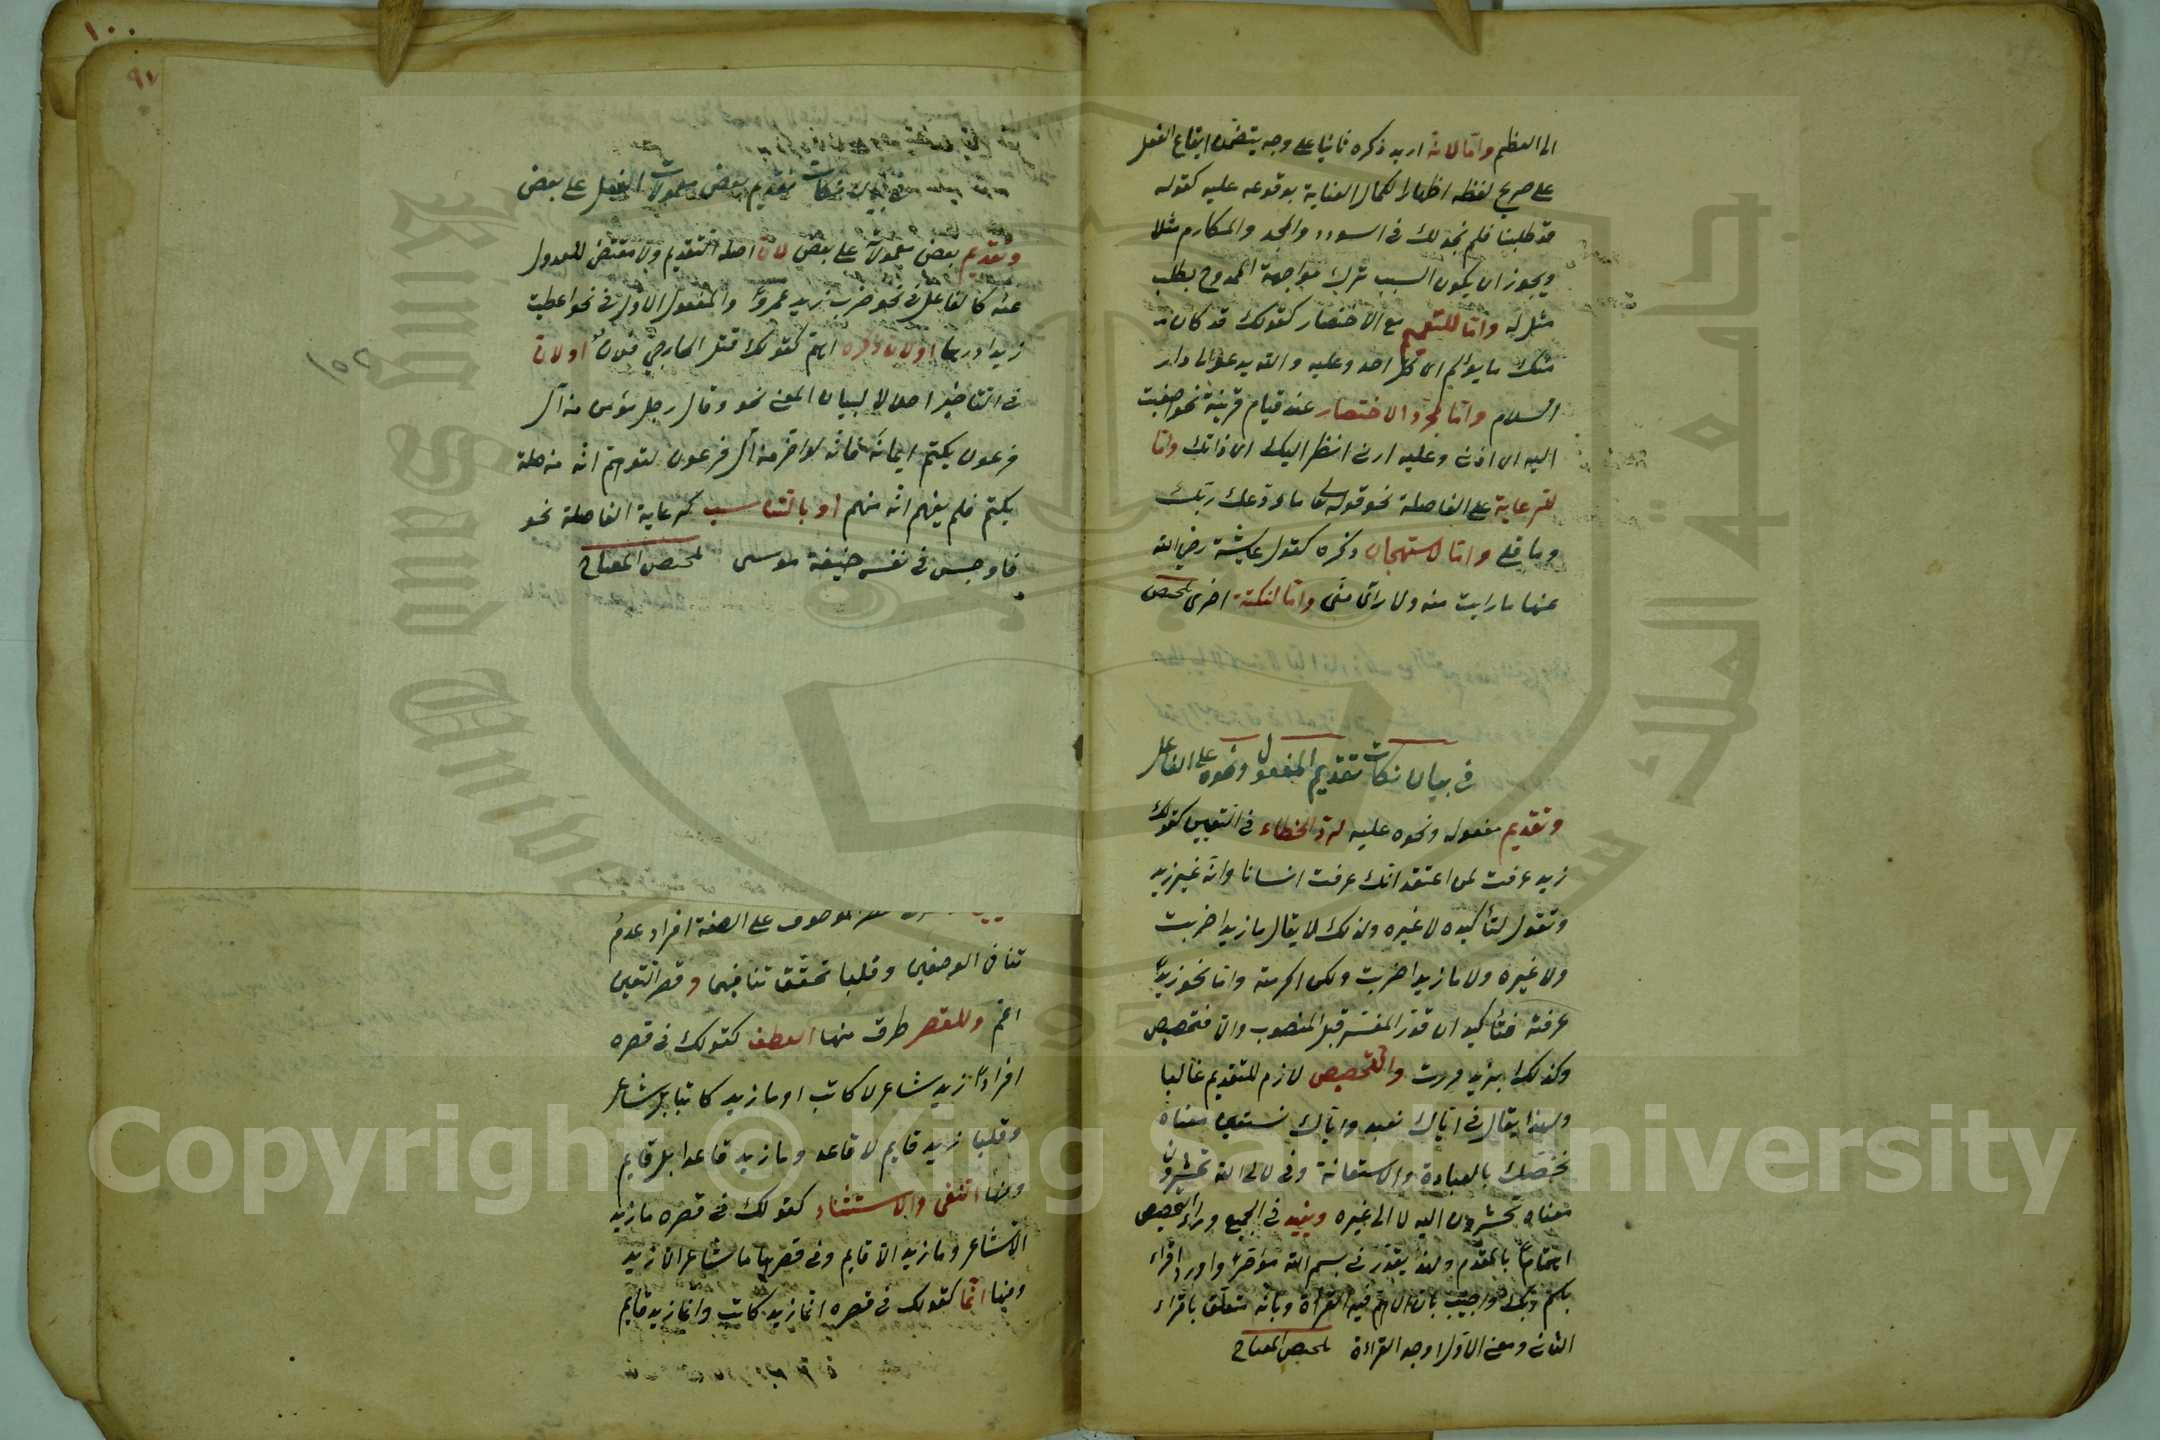 الى العظم واما لانه اريد ذكره ثانيا على وجه يتضمن ايقاع الفعل
على صريح لفظه اظهارا لكمال العناية بوقوعه عليه كقوله
قد طلبنا فلم نجد لك فى السودد والمجد والمكارم مثلا
ويجوز ان يكون السبب ترك مواجهة الممدوح بطلب
مثل له واما للتعميم مع الاختصار كقولك قد كان
منك ما يؤلم اى كل احد وعليه والله يدعو الى دار
السلام واما لمجرد الاختصار عند قيام قرينة نحو اصغيت
اليه اى اذنى وعليه ارنى انظر اليك اى ذاتك واما
للرعاية على الفاصلة نحو قوله تعالى ما ودعك ربك
وما قلى واما لاستهجان ذكره كقول عايشة رضى الله
عنها ما رايت منه ولا راى منى واما لنكتة اخرى تلخيص
فى بيان نكات تقديم المفعول ونحوه على الفاعل
وتقديم مفعوله ونحوه عليه لرد الخطاء فى التعيين كقولك
زيد عرفت لمن اعتقد انك عرفت انسانا وانه غير زيد
وتقول لتأكيده لا غيره ولذلك لا يقال ما زيدا ضربت
ولا غيره ولا ما زيدا ضربت ولكن اكرمته واما نحو زيدا
عرفته فتأكيد ان قدر المفسر قبل المنصوب والا فتخصيص
وكذلك بزيد مررت والتخصيص لازم للتقديم غالبا
ولهذا يقال فى اياك نعبد واياك نستعين معناه
نخصك بالعبادة والاستعانة وفى لالى الله تحشرون
معناه تحشرون اليه لا الى غيره ويفيد فى الجميع وراء التخصيص
اهتماما بالمقدم ولهذا يقدر فى بسم الله مؤخرا واورد اقراء
باسم ربك واجيب بان الاهم فيه القرأة وبانه متعلق باقراء
الثانى ومعنى الاول اوجد القراءة تلخيص المفتاح
١٠٠
٩٧
فى بيان نكات تقديم بعض معمولات الفعل على بعض
وتقديم بعض معمولاته على بعض لان اصله التقديم ولا مقتضى للعدول
عنه كالفاعل فى نحو ضرب زيد عمروا والمفعول الاول فى نحو اعطيت
زيدا درهما او لان ذكره اهم كقولك قتل الخارجى فلان او لان
فى التأخير اخلالا ببيان المعنى نحو وقال رجل مؤمن من آل
فرعون يكتم ايمانه فانه لو اخر من آل فرعون لتوهم انه من صلة
يكتم فلم يفهم انه منهم او بالتناسب كرعاية الفاصلة نحو
فاوجس فى نفسه خيفة موسى تلخيص المفتاح
الموصوف على الصفة افراد عدم
تنافى الوصفين وقلبا تحقق تنافيهما وقصر التعيين
اعم وللقصر طرق منها العطف كقولك فى قصره
افرادا زيد شاعر لا كاتب او ما زيد كاتبا بل شاعر
وقلبا زيد قايم لا قاعد وما زيد قاعدا بل قايم
ومنها النفى والاستثناء كقولك فى قصره ما زيد
الا شاعر وما زيد الا قايم وفى قصرها ما شاعر الا زيد
ومنها انما كقولك فى قصره انما زيد كاتب وانما زيد قايم
King Saud University
جامعة الملك سعود
Copyright © King Saud University